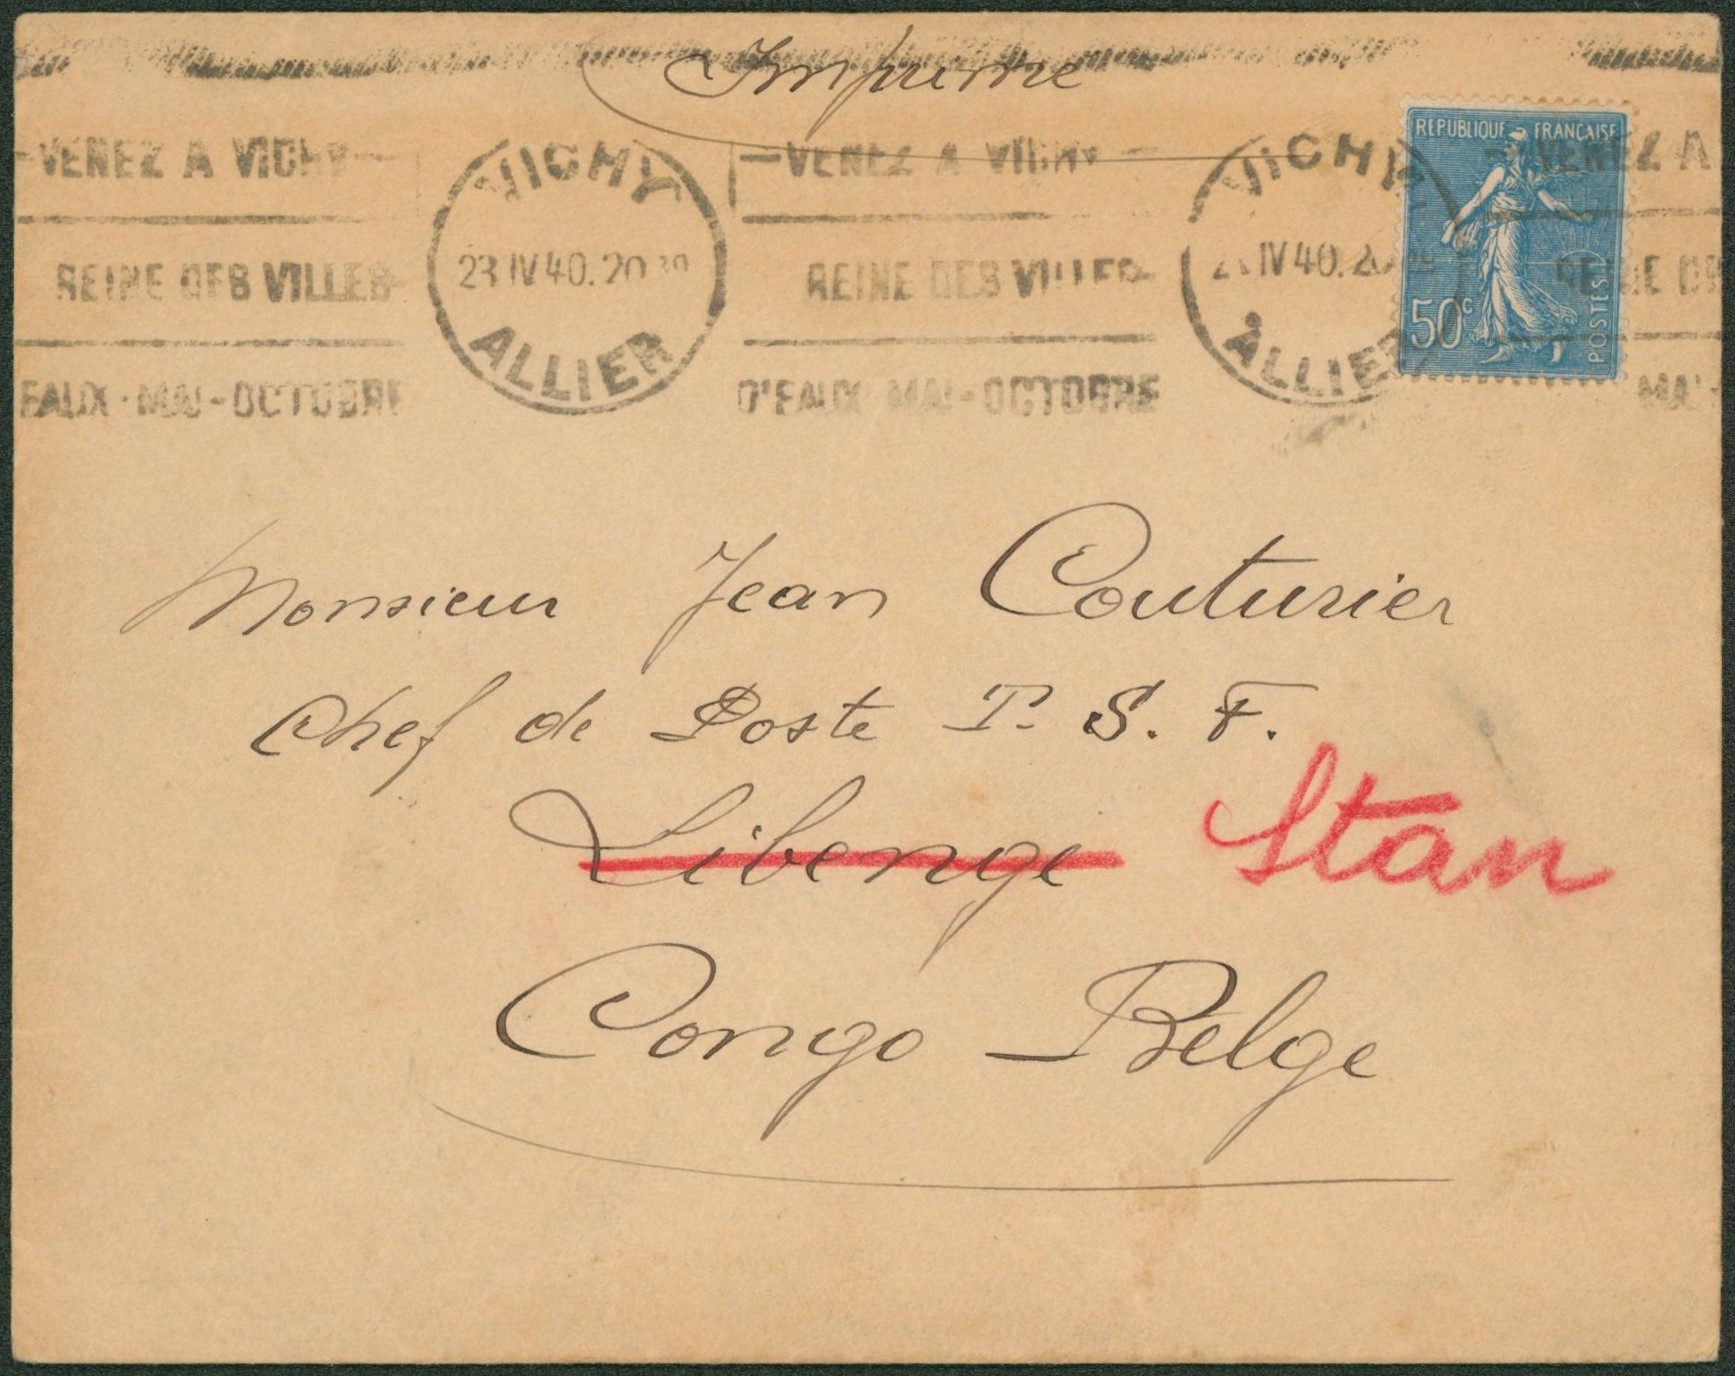 Imprimé
VENEZ A VICHY VICHY VENEZ A VICHY VICHY REPUBLIQUE FRANÇAISE VENEZ A
REINE DES VILLES 23 IV 40. 20 30 REINE DES VILLES IV 40. 20 REINE DES
50c POSTES
EAUX · MAI - OCTOBRE ALLIER D'EAUX MAI - OCTOBRE ALLIER MAI -
Monsieur Jean Couturier
Chef de Poste T. S. F.
Libenge Stan
Congo Belge